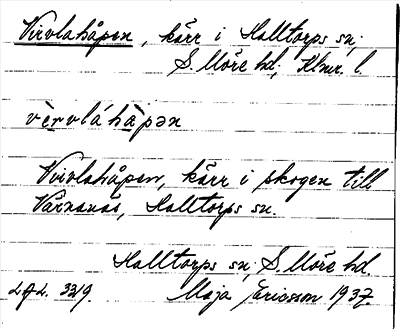 Virvlahåpen, kärr i Halltorps sn;
S. Möre hd; Klmr. l.
vèrvláhàpən
Virvlahåpen, kärr i skogen till
Värnanäs, Halltorps sn.
Halltorps sn; S. Möre hd.
Maja Ericsson 1937.